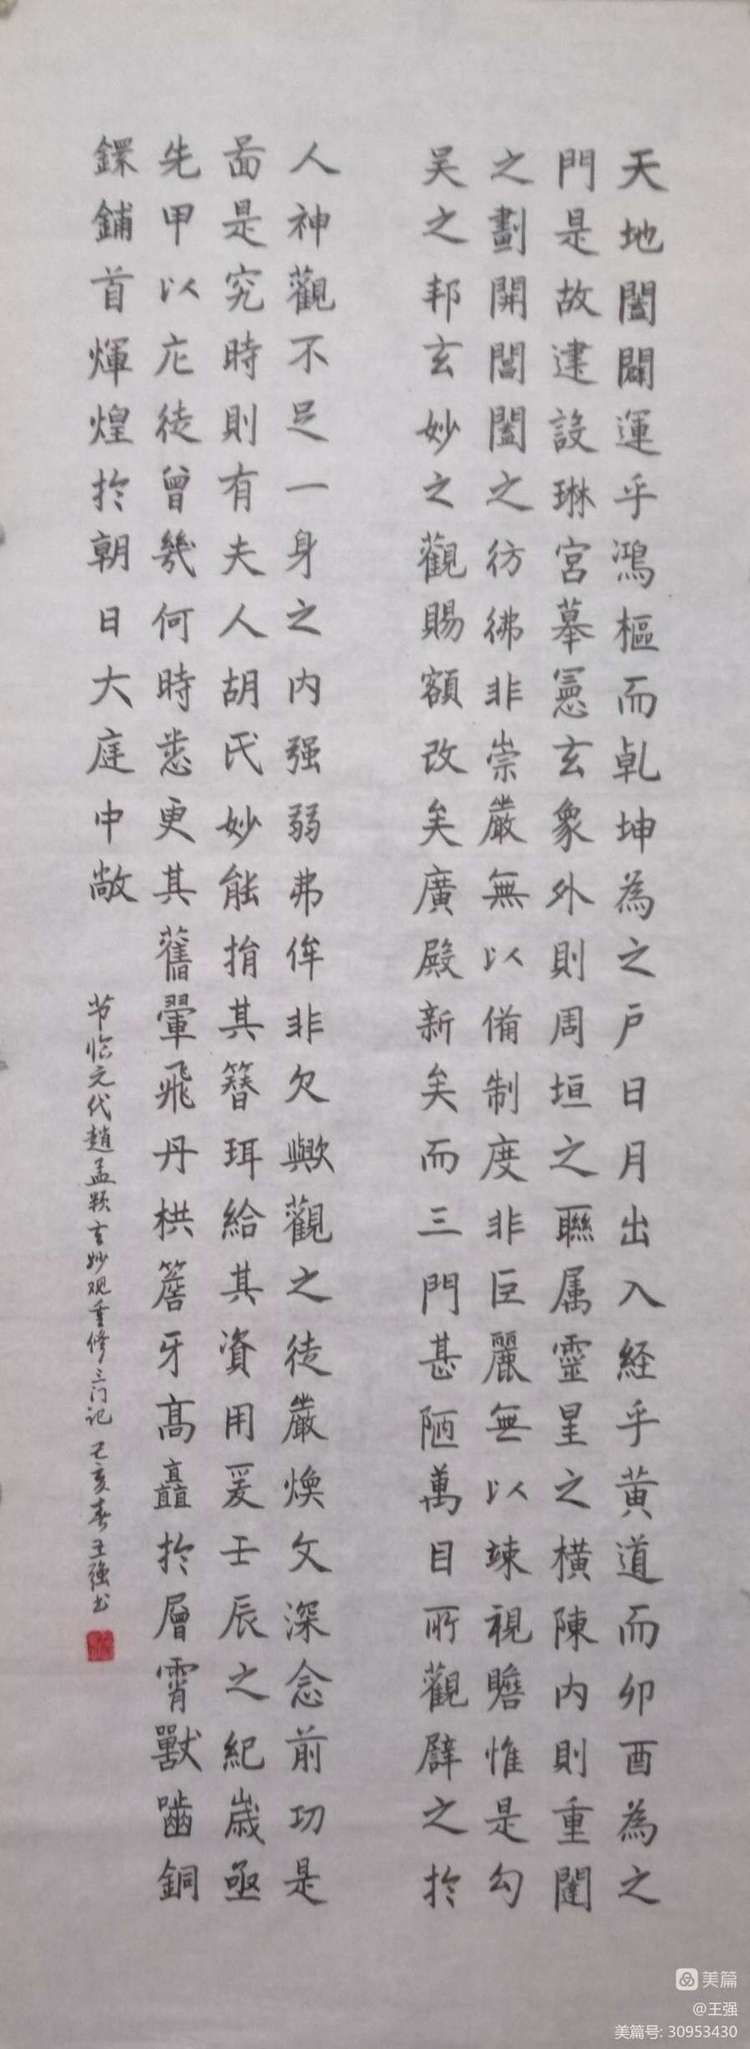 天地闔闢運乎鴻樞而乹坤為之戶日月出入経乎黄道而卯酉為之
門是故建設琳宮摹憲玄象外則周垣之聯属靈星之橫陳内則重闥
之劃開閶闔之彷彿非崇嚴無以備制度非巨麗無以竦視瞻惟是勾
吴之邦玄妙之觀賜額改矣廣殿新矣而三門甚陋萬目所觀辟之於
人神觀不足一身之内强弱弗侔非欠歟觀之徒嚴煥文深念前功是
啚是究時則有夫人胡氏妙能捐其簪珥給其資用爰壬辰之紀歳亟
先甲以庀徒曾幾何時悉更其舊翬飛丹栱簷牙高矗於層霄獸嚙銅
鐶鋪首煇煌於朝日大庭中敞
节临元代趙孟頫玄妙观重修三门记 己亥春王强书
美篇
@王强
美篇号: 30953430